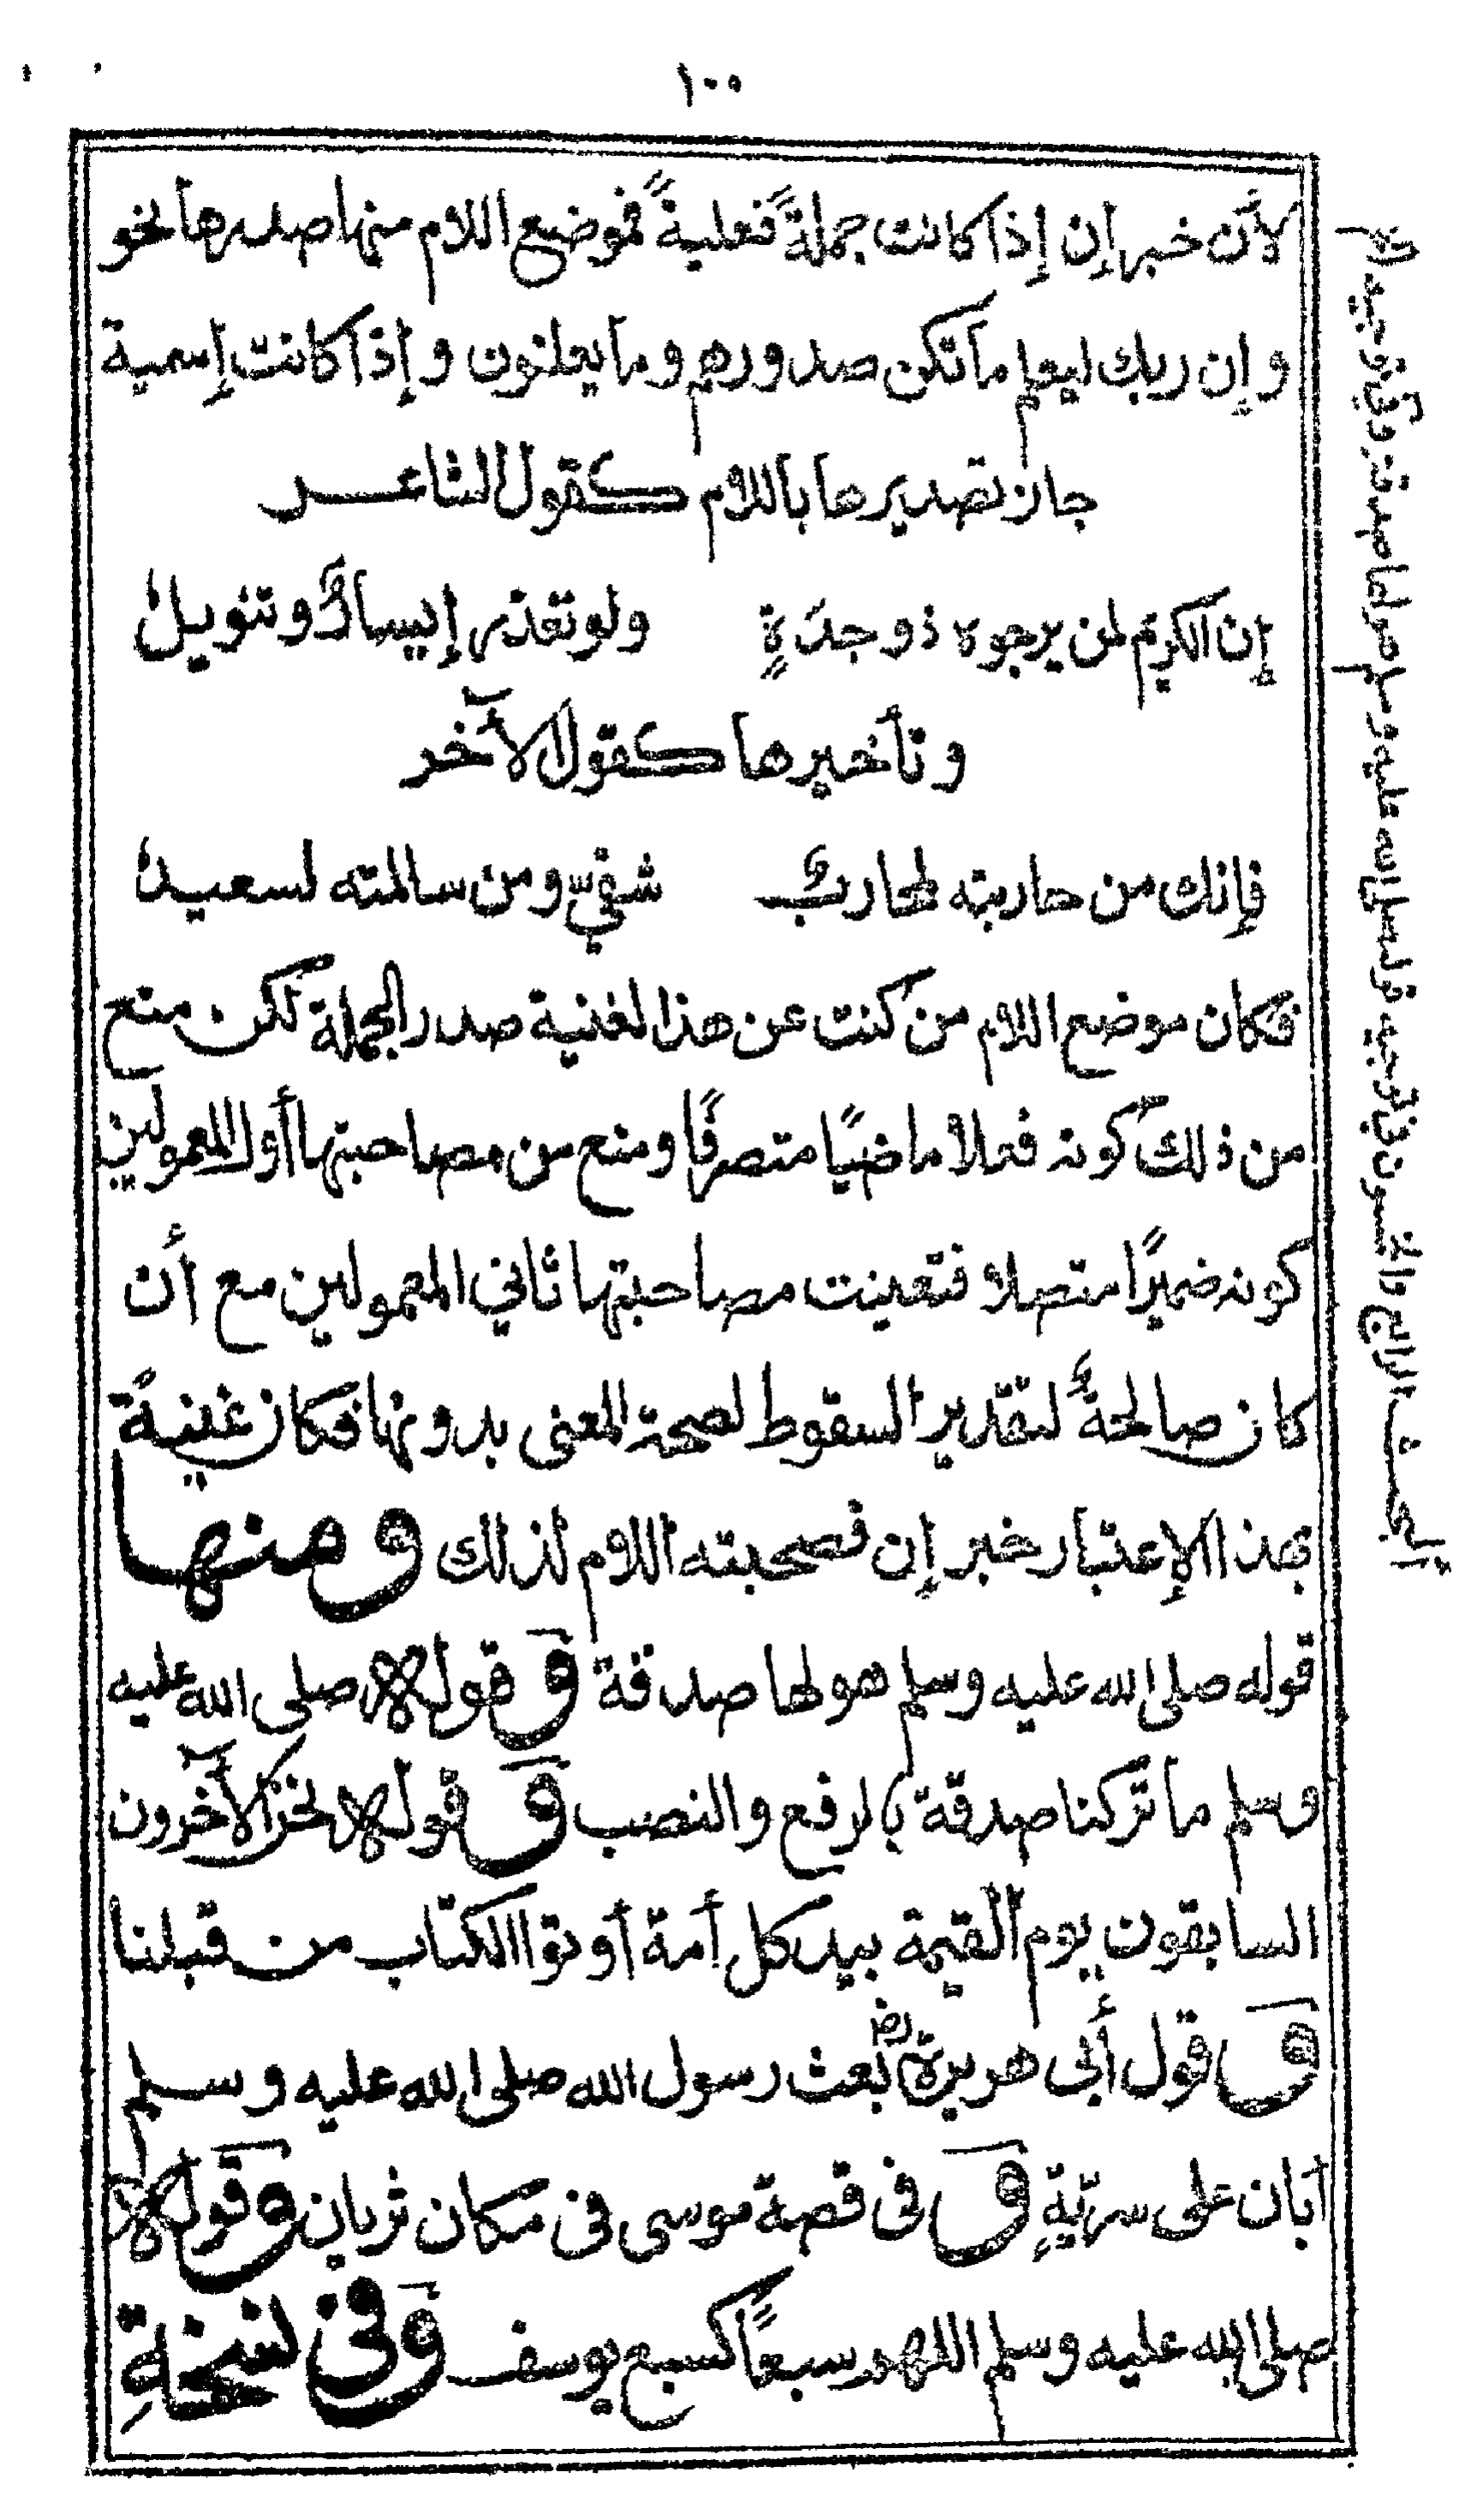 ١٠٠
لأن خبر إن إذا كانت جملةً فعليةً فموضع اللام منها صدرها نحو
و إن ربك ليعلم ما تكن صدورهم و ما يعلنون و إذا كانت إسمية
جاز تصديرها باللام كقول الشاعر
إن الكريم لمن يرجوه ذو جدَةٍ ولو تعذر إيسارٌ و تنويلُ
و تأخيرها كقول الآخر
فإنك من حاربته لمحاربٌ شقيّ و من سالمته لسعيدُ
فكان موضع اللام من كنت عن هذا لغنية صدر الجملة لكن منع
من ذلك كونه فعلا ماضيًا متصرفًا و منع من مصاحبتها أول المعمولين
كونه ضميرًا متصلا فتعينت مصاحبتها ثاني المعمولين مع أن
كان صالحةٌ لتقدير السقوط لصحة المعنى بدونها فكان غنيةً
بهذا الإعتبار خبر إن فصحبته اللام لذلك و منها
قوله صلى الله عليه وسلم هو لها صدقة و قوله صلى الله عليه
وسلم ما تركنا صدقة بالرفع والنصب و قوله نحن الآخرون
السابقون يوم القيمة بيد كل أمة أوتوا الكتاب من قبلنا
و قول أبي هريرة رض بعث رسول الله صلى الله عليه وسلم
أبان على سريّةٍ و في قصة موسى في مكان ثريان و قوله
صلى الله عليه وسلم اللهم سبعًا كسبع يوسف و في نسخةٍ